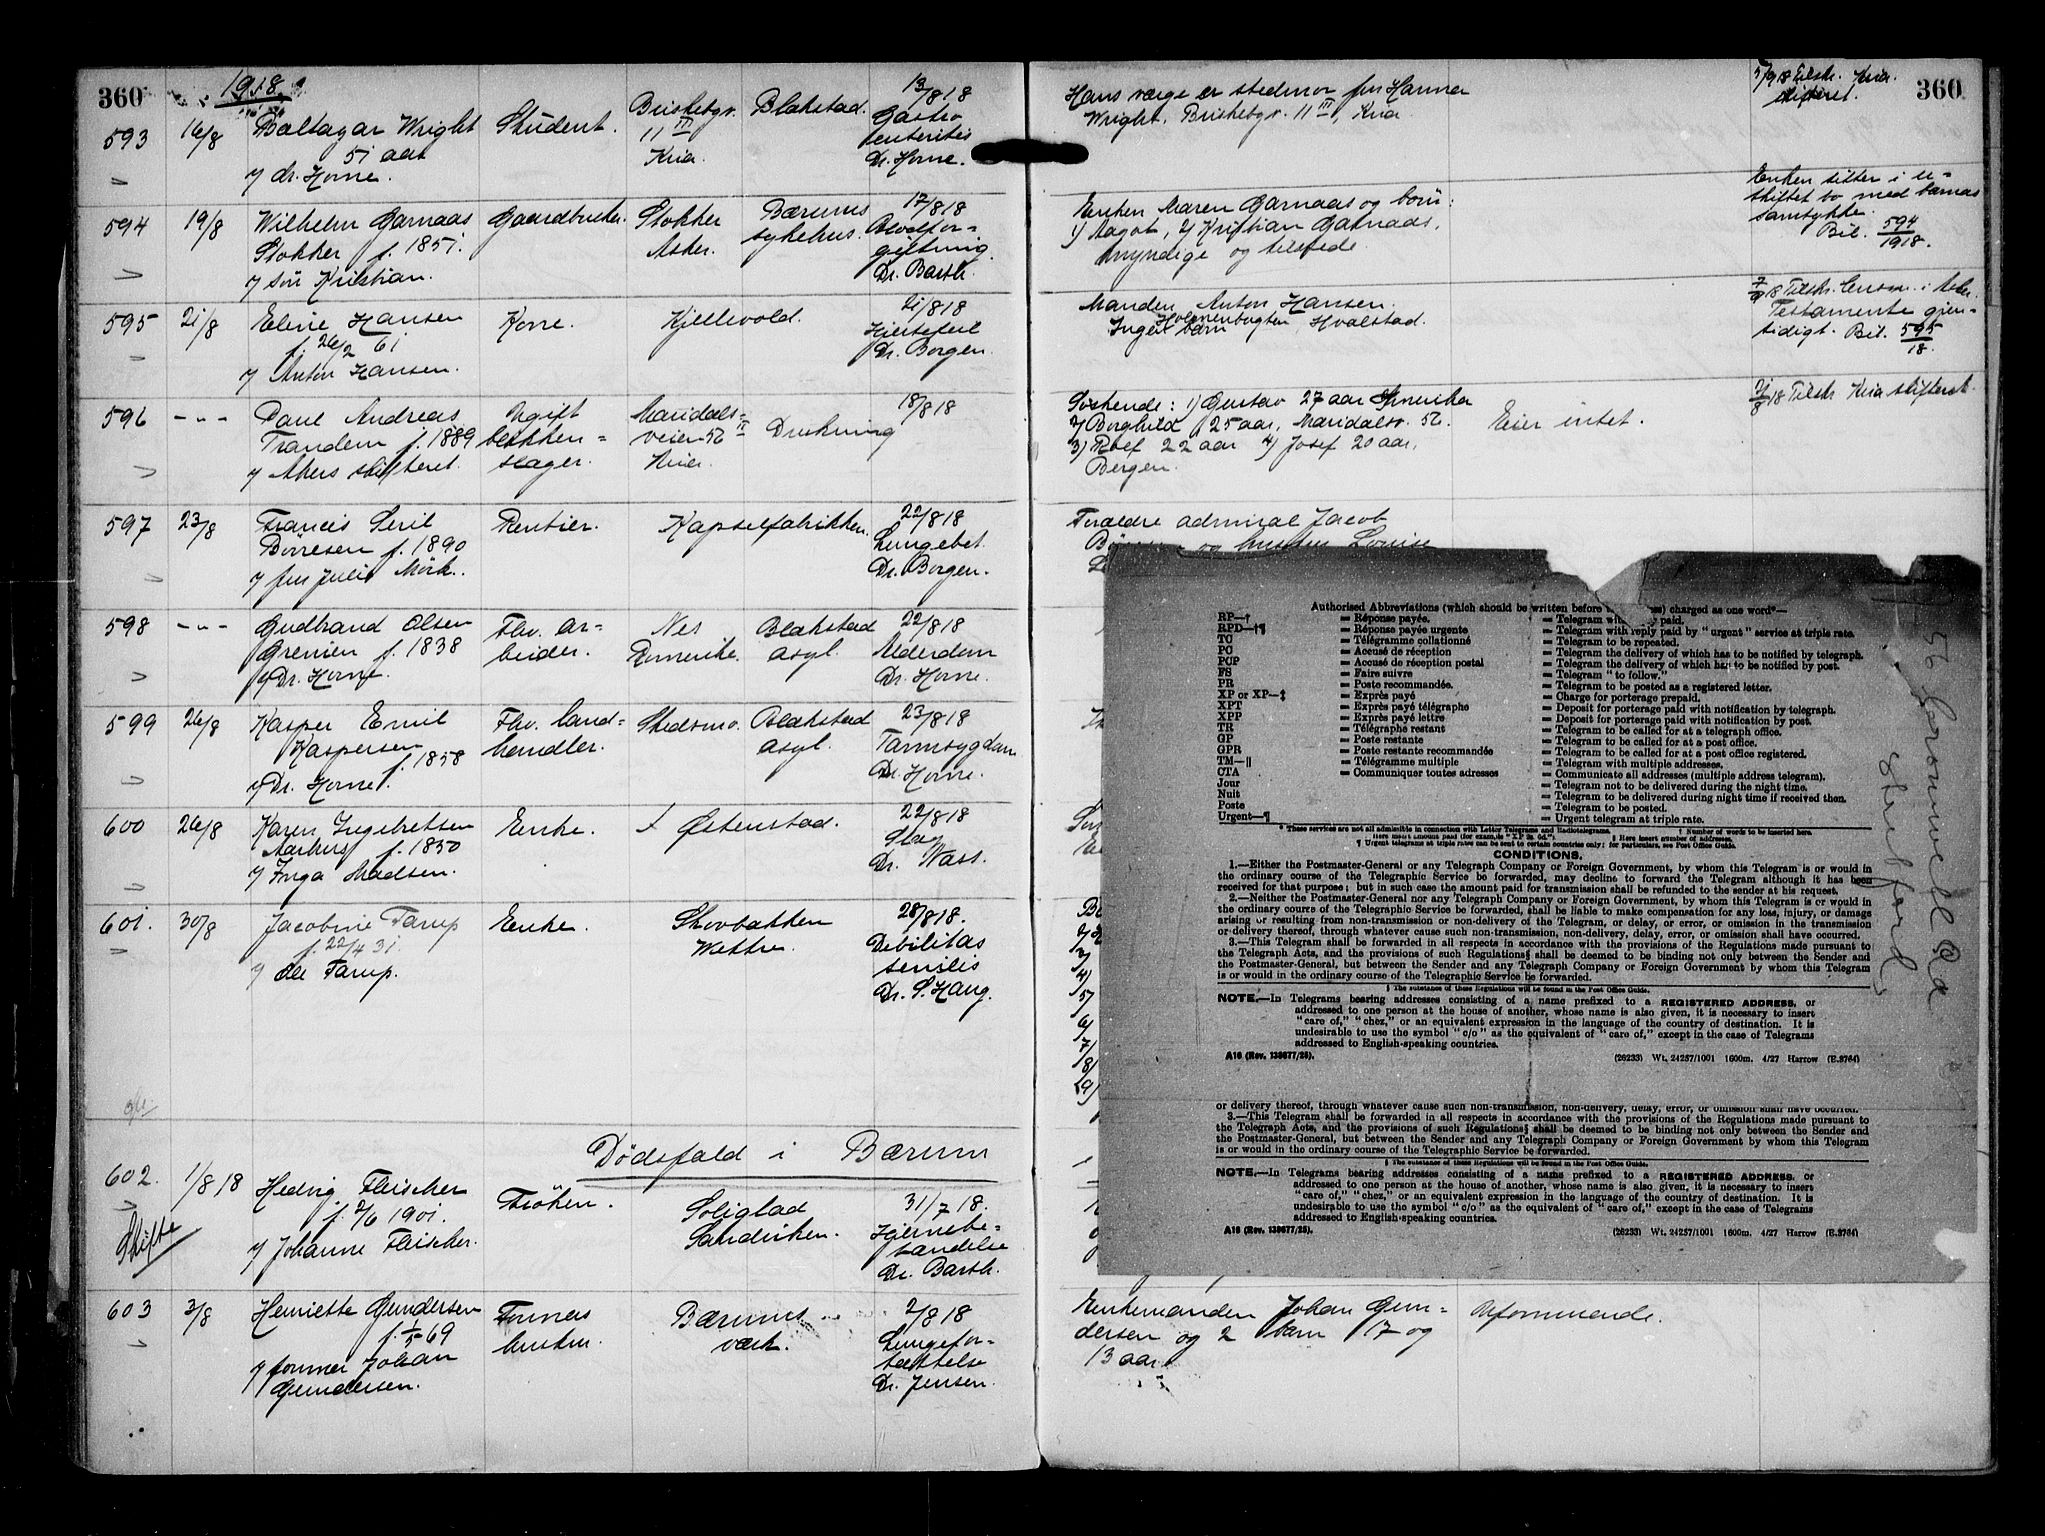 360
1918.
593
16/8
Baltazar Wright
51 aar
v/ dr. Horne.
Student.
Briskebyv.
11 III
Kria.
Blakstad.
13/8 18
Gastro
enteritis
Dr. Horne.
594
19/8
Wilhelm Garnaas
Slokker f. 1851.
v/ søn Kristian.
Gaardbruker.
Slokker
Asker.
Bærums
sykehus.
17/8 18
Blodfor-
giftning.
Dr. Barth.
595
21/8
Eline Hansen
f. 26/2 61
v/ Anton Hansen.
Kone.
Kjellevold.
21/8 18
Hjertefeil
Dr. Borgen.
596
-"-
Paul Andreas
Trandem f. 1889
v/ Akers skifteret.
Ugift
blikken=
slager.
Maridals=
veien 56 II
Kria.
Drukning
18/8 18
597
23/8
Francis Seril
Børresen f. 1890
v/ fru Julie Mørk.
Rentier.
Kapselfabrikken.
22/8 18
Lungebet.
Dr. Borgen.
598
-"-
Gudbrand Olsen
Grenien f. 1838
v/ Dr. Horne.
Fhv. ar=
beider.
Nes
Romerike.
Blakstad
asyl.
22/8 18
Alderdom
Dr. Horne.
599
26/8
Kasper Emil
Kaspersen
f. 1858
v/ Dr. Horne.
Fhv. land=
handler.
Skedsmo.
Blakstad
asyl.
23/8 18
Tarmsygdom
Dr. Horne.
600
26/8
Karen Ingebretsen
Aarhus f. 1850
v/ Inga Madsen.
Enke.
Østenstad.
22/8 18
Slag
Dr. Wass.
601.
30/8
Jacobine Farup
f. 22/4 31.
v/ Ole Farup.
Enke.
Skovbakken
Wettre.
28/8 18.
Debilitas
senilis
Dr. S. Haug.
Dødsfald i Bærum
602.
Skifte
1/8 18
Hedvig Fleischer
f. 2/6 1901.
v/ Johanne Fleischer.
Frøken.
Soliglad
Sandviken.
31/7 18.
Hjernebe=
tændelse
Dr. Barth.
603
3/8
Henriette Gundersen
f. 1/5 69
v/ former Johan
Gundersen.
Formers
hustru.
Bærums
verk.
2/8 18
Lungefor-
tættelse
Dr. Jensen.
360
Hans værge er stedmor fru Hanna
Wright, Briskebyv. 11 III, Kria.
5/9 18 Tilskr. Kria
skifteret.
Enken Maren Garnaas og børn:
1) Aagot, 2) Kristian Garnaas,
myndige og tilstede.
Enken sitter i u=
skiftet bo med barnas
samtykke.
Bil. 594/1918.
Manden Anton Hansen.
Holmenbugten Hvalstad.
Inget barn
7/9 18 Tilskr. lensm. i Asker.
Testamente gjen=
sidigt. Bil. 595/18.
Søskende: 1) Gustav 27 aar Amerika
2) Borghild 25 aar, Maridalsv. 56.
3) Rolf 22 aar 4) Josef 20 aar,
Bergen.
Eier intet.
21/8 18 Tilskr Kria skifteret.
Forældre admiral Jacob
og hustru Louise
Authorised Abbreviations (which should be written before charged as one word*—
RP—† = Réponse payée. = Telegram with paid.
RPD—†¶ = Réponse payée urgente = Telegram with reply paid by "urgent" service at triple rate.
TC = Télégramme collationné = Telegram to be repeated.
PC = Accusé de réception = Telegram the delivery of which has to be notified by telegraph.
PCP = Accusé de réception postal = Telegram the delivery of which has to be notified by post.
FS = Faire suivre = Telegram "to follow."
PR = Poste recommandée. = Telegram to be posted as a registered letter.
XP or XP—‡ = Exprès payé = Charge for porterage prepaid.
XPT = Exprès payé télégraphe = Deposit for porterage paid with notification by telegraph.
XPP = Exprès payé lettre = Deposit for porterage paid with notification by post.
TR = Télégraphe restant = Telegram to be called for at a telegraph office.
GP = Poste restante = Telegram to be called for at a post office.
GPR = Poste restante recommandée = Telegram to be called for at a post office registered.
TM—|| = Télégramme multiple = Telegram with multiple addresses.
CTA = Communiquer toutes adresses = Communicate all addresses (multiple address telegram).
Jour = Telegram not to be delivered during the night time.
Nuit = Telegram to be delivered during night time if received then.
Poste = Telegram to be posted.
Urgent—¶ = Urgent telegram at triple rate.
* These services are not all admissible in connection with Letter Telegrams and Radiotelegrams. † Number of words to be inserted here.
‡ Here insert amount paid (for example "XP 2s. 0d."). || Here insert number of addresses.
¶ Urgent telegrams at triple rates can be sent to certain countries only; for particulars, see Post Office Guide.
CONDITIONS.
1.—Either the Postmaster-General or any Telegraph Company or Foreign Government, by whom this Telegram is or would in
the ordinary course of the Telegraphic Service be forwarded, may decline to forward the Telegram although it has been
received for that purpose; but in such case the amount paid for transmission shall be refunded to the sender at his request.
2.—Neither the Postmaster-General nor any Telegraph Company or Foreign Government, by whom this Telegram is or would in
the ordinary course of the Telegraphic Service be forwarded, shall be liable to make compensation for any loss, injury, or damage
arising or resulting from non-transmission or non-delivery of the Telegram, or delay, or error, or omission in the transmission
or delivery thereof, through whatever cause such non-transmission, non-delivery, delay, error, or omission shall have occurred.
3.—This Telegram shall be forwarded in all respects in accordance with the provisions of the Regulations made pursuant to
the Telegraph Acts, and the provisions of such Regulations§ shall be deemed to be binding not only between the Sender and
the Postmaster-General, but between the Sender and any Telegraph Company or Foreign Government by whom this Telegram
is or would in the ordinary course of the Telegraphic Service be forwarded.
§ The substance of these Regulations will be found in the Post Office Guide.
NOTE.—In Telegrams bearing addresses consisting of a name prefixed to a REGISTERED ADDRESS, or
addressed to one person at the house of another, whose name is also given, it is necessary to insert
"care of," "chez," or an equivalent expression in the language of the country of destination. It is
undesirable to use the symbol "c/o" as the equivalent of "care of," except in the case of Telegrams
addressed to English-speaking countries.
A16 (Rev. 138677/26). (26233) Wt. 24257/1001 1600m. 4/27 Harrow (E.3764)
or delivery thereof, through whatever cause such non-transmission, non-delivery, delay, error, or omission shall have occurred.
3.—This Telegram shall be forwarded in all respects in accordance with the provisions of the Regulations made pursuant to
the Telegraph Acts, and the provisions of such Regulations§ shall be deemed to be binding not only between the Sender and
the Postmaster-General, but between the Sender and any Telegraph Company or Foreign Government by whom this Telegram
is or would in the ordinary course of the Telegraphic Service be forwarded.
§ The substance of these Regulations will be found in the Post Office Guide.
NOTE.—In Telegrams bearing addresses consisting of a name prefixed to a REGISTERED ADDRESS, or
addressed to one person at the house of another, whose name is also given, it is necessary to insert
"care of," "chez," or an equivalent expression in the language of the country of destination. It is
undesirable to use the symbol "c/o" as the equivalent of "care of," except in the case of Telegrams
addressed to English-speaking countries.
A16 (Rev. 138677/26). (26233) Wt. 24257/1001 1600m. 4/27 Harrow (E.3764)
56 Cromwell Rd
Stretford
2)
3)
4)
5)
6)
7)
8)
9)
Enkemanden Johan Gun=
dersen og 2 barn 17 og
13 aar
Uformuende.